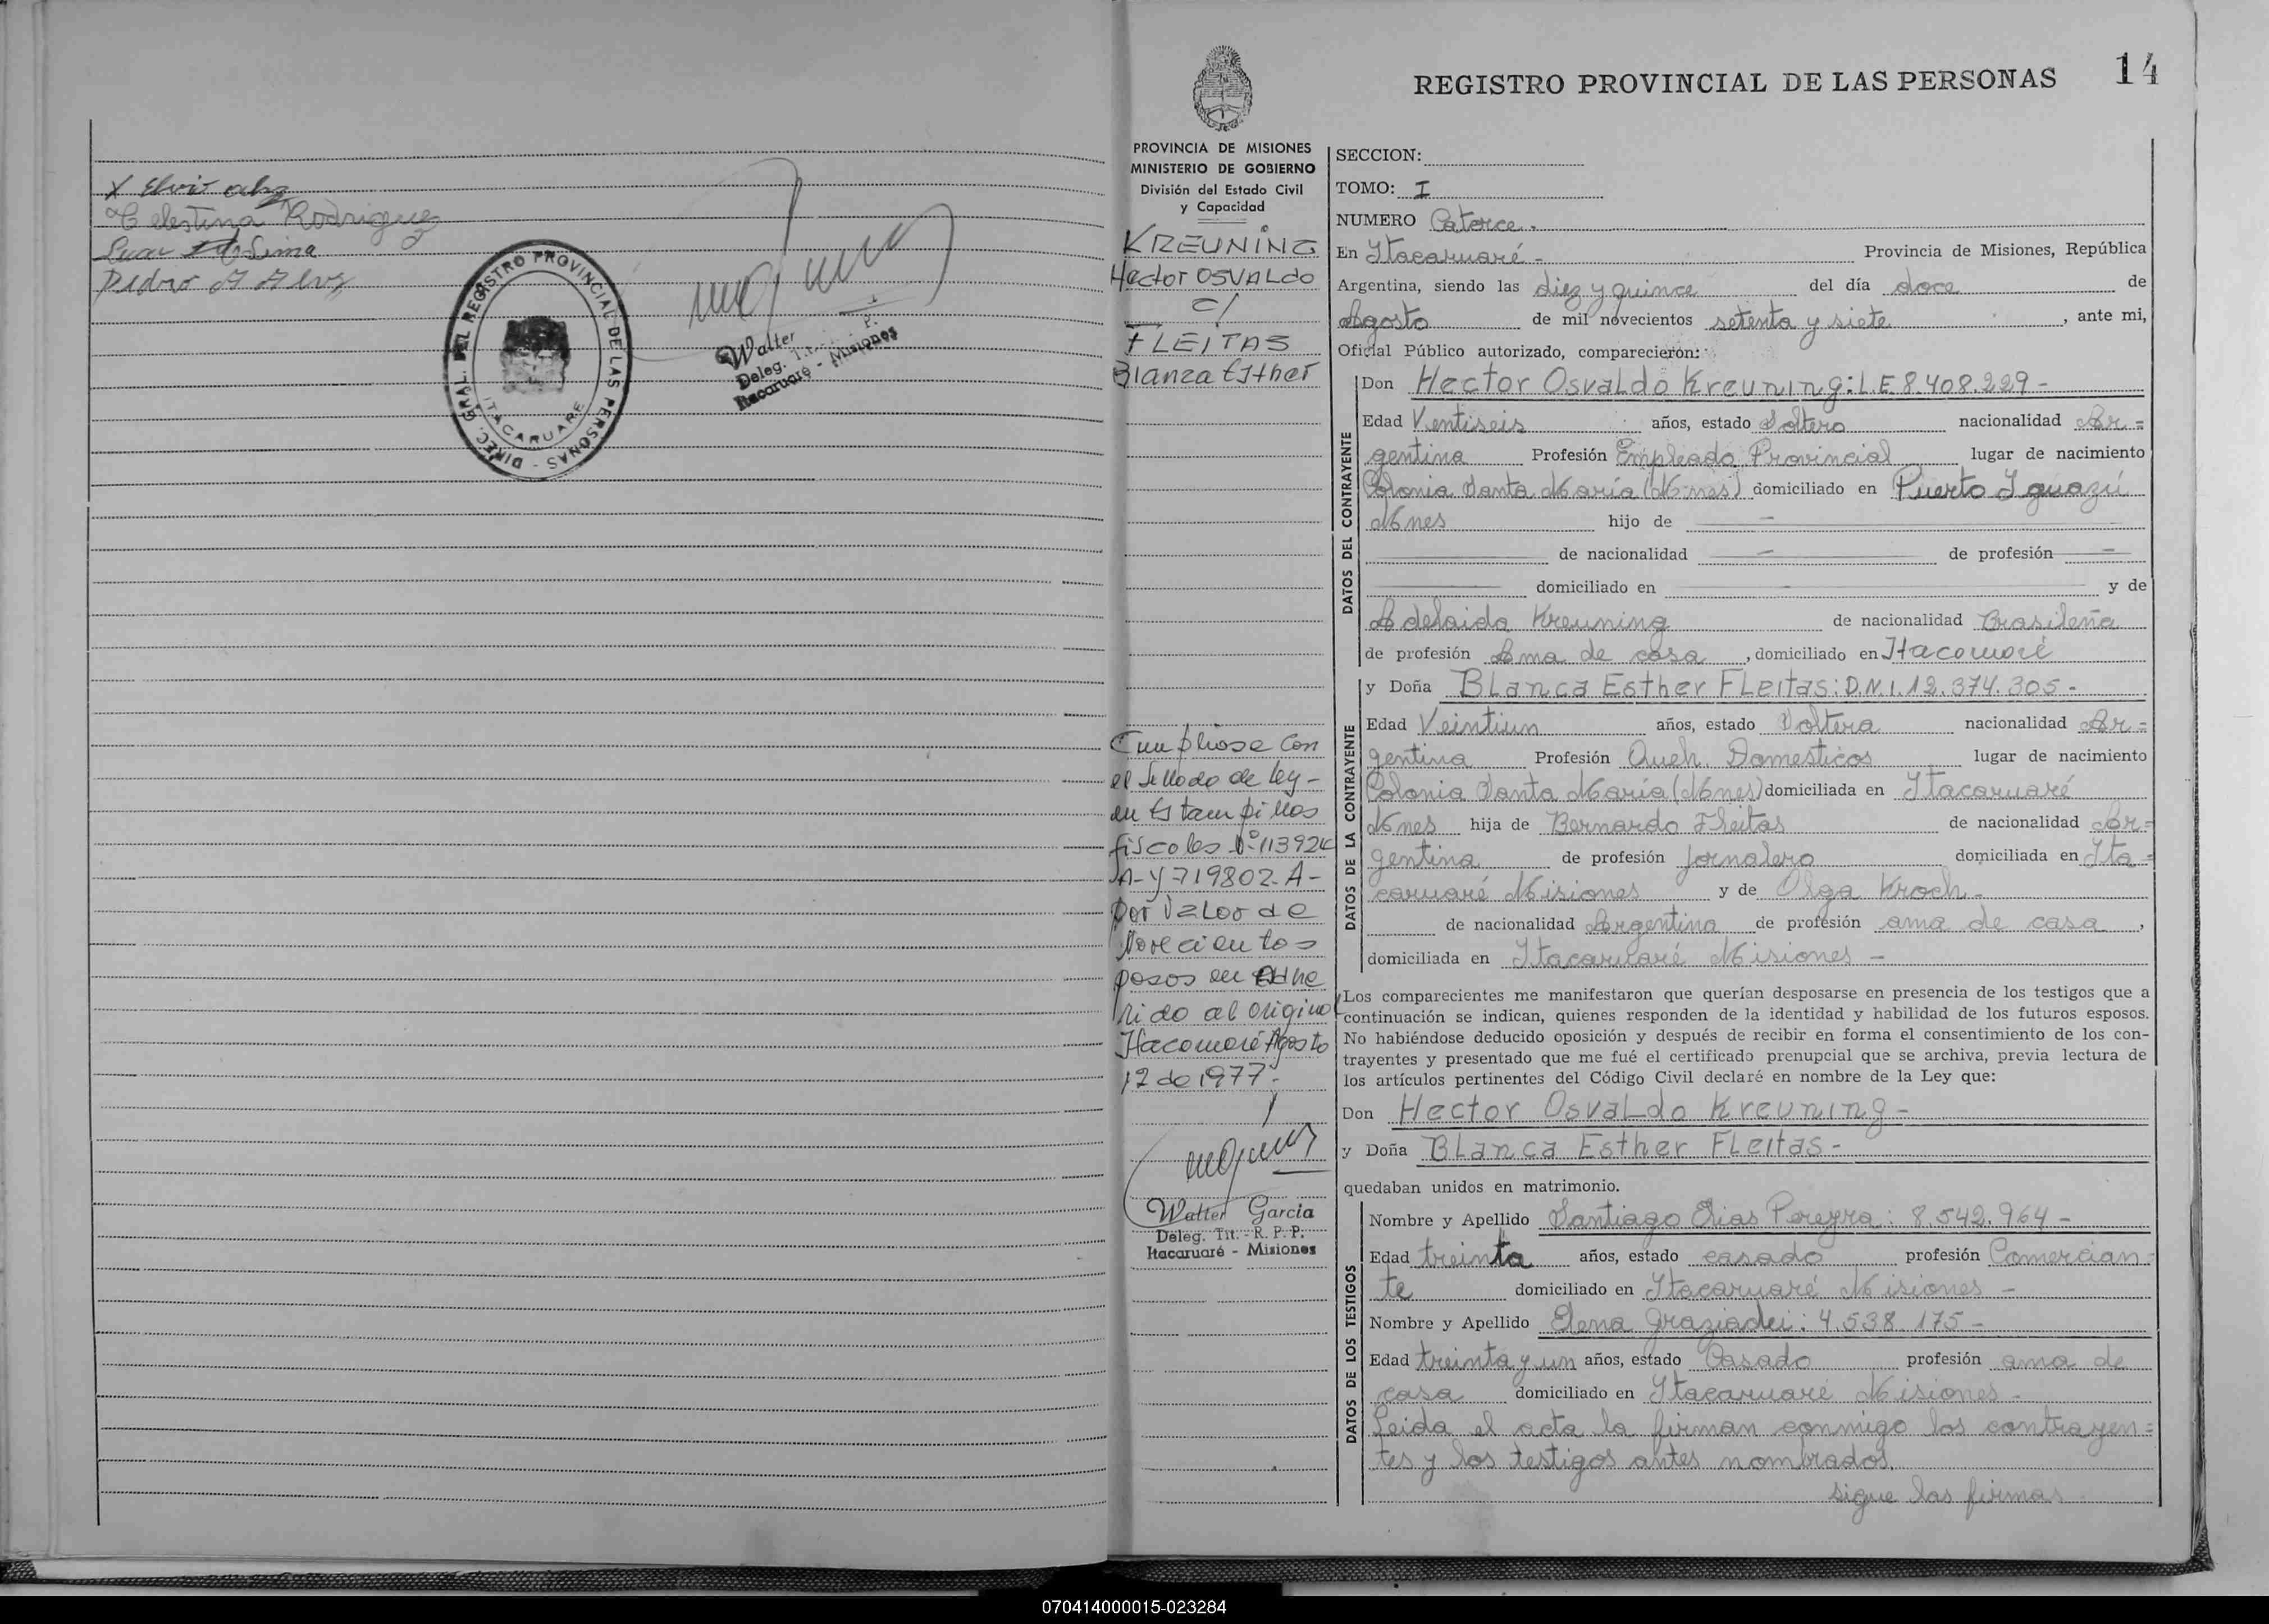 Celestina Rodriguez
Lima
Pedro
DIREC. GRAL. DEL REGISTRO PROVINCIAL DE LAS PERSONAS -
ITACARUARE
Walter
Deleg. Tit.
P.
Itacaruaré - Misiones
14
REGISTRO PROVINCIAL DE LAS PERSONAS
PROVINCIA DE MISIONES
MINISTERIO DE GOBIERNO
División del Estado Civil
y Capacidad
KREUNING
Hector OSVALDO
c/
FLEITAS
Blanca Esther
Cumpliose con
el sellado de ley -
en Estampillas
fiscales Nº 113924
A - y 719802 - A -
por valor de
Novecientos
pesos
rido al original
Itacaruaré Agosto
12 de 1977 -
Walter Garcia
Deleg. Tit. - R. P. P.
Itacaruaré - Misiones
SECCION:
TOMO: I
NUMERO Catorce.
En Itacaruaré - Provincia de Misiones, República
Argentina, siendo las diez y quince del día doce de
Agosto de mil novecientos setenta y siete, ante mi,
Oficial Público autorizado, comparecieron:
DATOS DEL CONTRAYENTE
Don Hector Osvaldo Kreuning: L.E 8.408.229 -
Edad Ventiseis años, estado Soltero nacionalidad Ar=
gentina Profesión Empleado Provincial lugar de nacimiento
Colonia Santa María (Mnes) domiciliado en Puerto Iguazú
Mnes hijo de —
de nacionalidad — de profesión —
domiciliado en y de
Adelaida Kreuning de nacionalidad Brasileña
de profesión Ama de casa, domiciliado en Itacaruaré
DATOS DE LA CONTRAYENTE
y Doña Blanca Esther Fleitas: D.N.I. 12.374.305 -
Edad Veintiun años, estado Soltera nacionalidad Ar=
gentina Profesión Queh. Domesticos lugar de nacimiento
Colonia Santa María (Mnes) domiciliada en Itacaruaré
Mnes hija de Bernardo Fleitas de nacionalidad Ar=
gentina de profesión Jornalero domiciliada en Ita=
caruaré Misiones y de Olga Kroch -
de nacionalidad Argentina de profesión ama de casa,
domiciliada en Itacaruaré Misiones -
Los comparecientes me manifestaron que querían desposarse en presencia de los testigos que a
continuación se indican, quienes responden de la identidad y habilidad de los futuros esposos.
No habiéndose deducido oposición y después de recibir en forma el consentimiento de los con-
trayentes y presentado que me fué el certificado prenupcial que se archiva, previa lectura de
los artículos pertinentes del Código Civil declaré en nombre de la Ley que:
Don Hector Osvaldo Kreuning -
y Doña Blanca Esther Fleitas -
quedaban unidos en matrimonio.
DATOS DE LOS TESTIGOS
Nombre y Apellido Santiago Elias Pereyra: 8.542.964 -
Edad treinta años, estado casado profesión Comercian=
te domiciliado en Itacaruaré Misiones -
Nombre y Apellido Elena Graziadei: 4.538.175 -
Edad treinta y un años, estado Casado profesión ama de
casa domiciliado en Itacaruaré Misiones -
Leida el acta la firman conmigo los contrayen=
tes y los testigos antes nombrados.
sigue las firmas
070414000015-023284